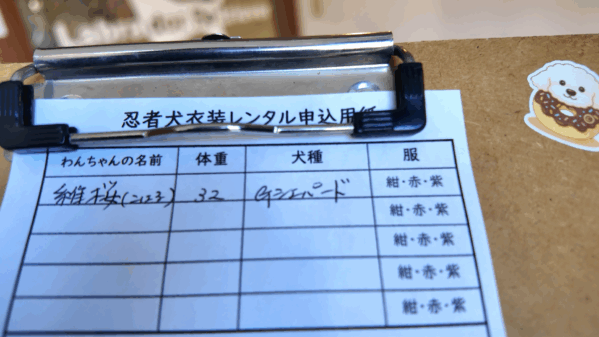 忍者犬衣装レンタル申込用紙
わんちゃんの名前 体重 犬種 服
桜 32 シェパード 紺・赤・紫
紺・赤・紫
紺・赤・紫
紺・赤・紫
紺・赤・紫